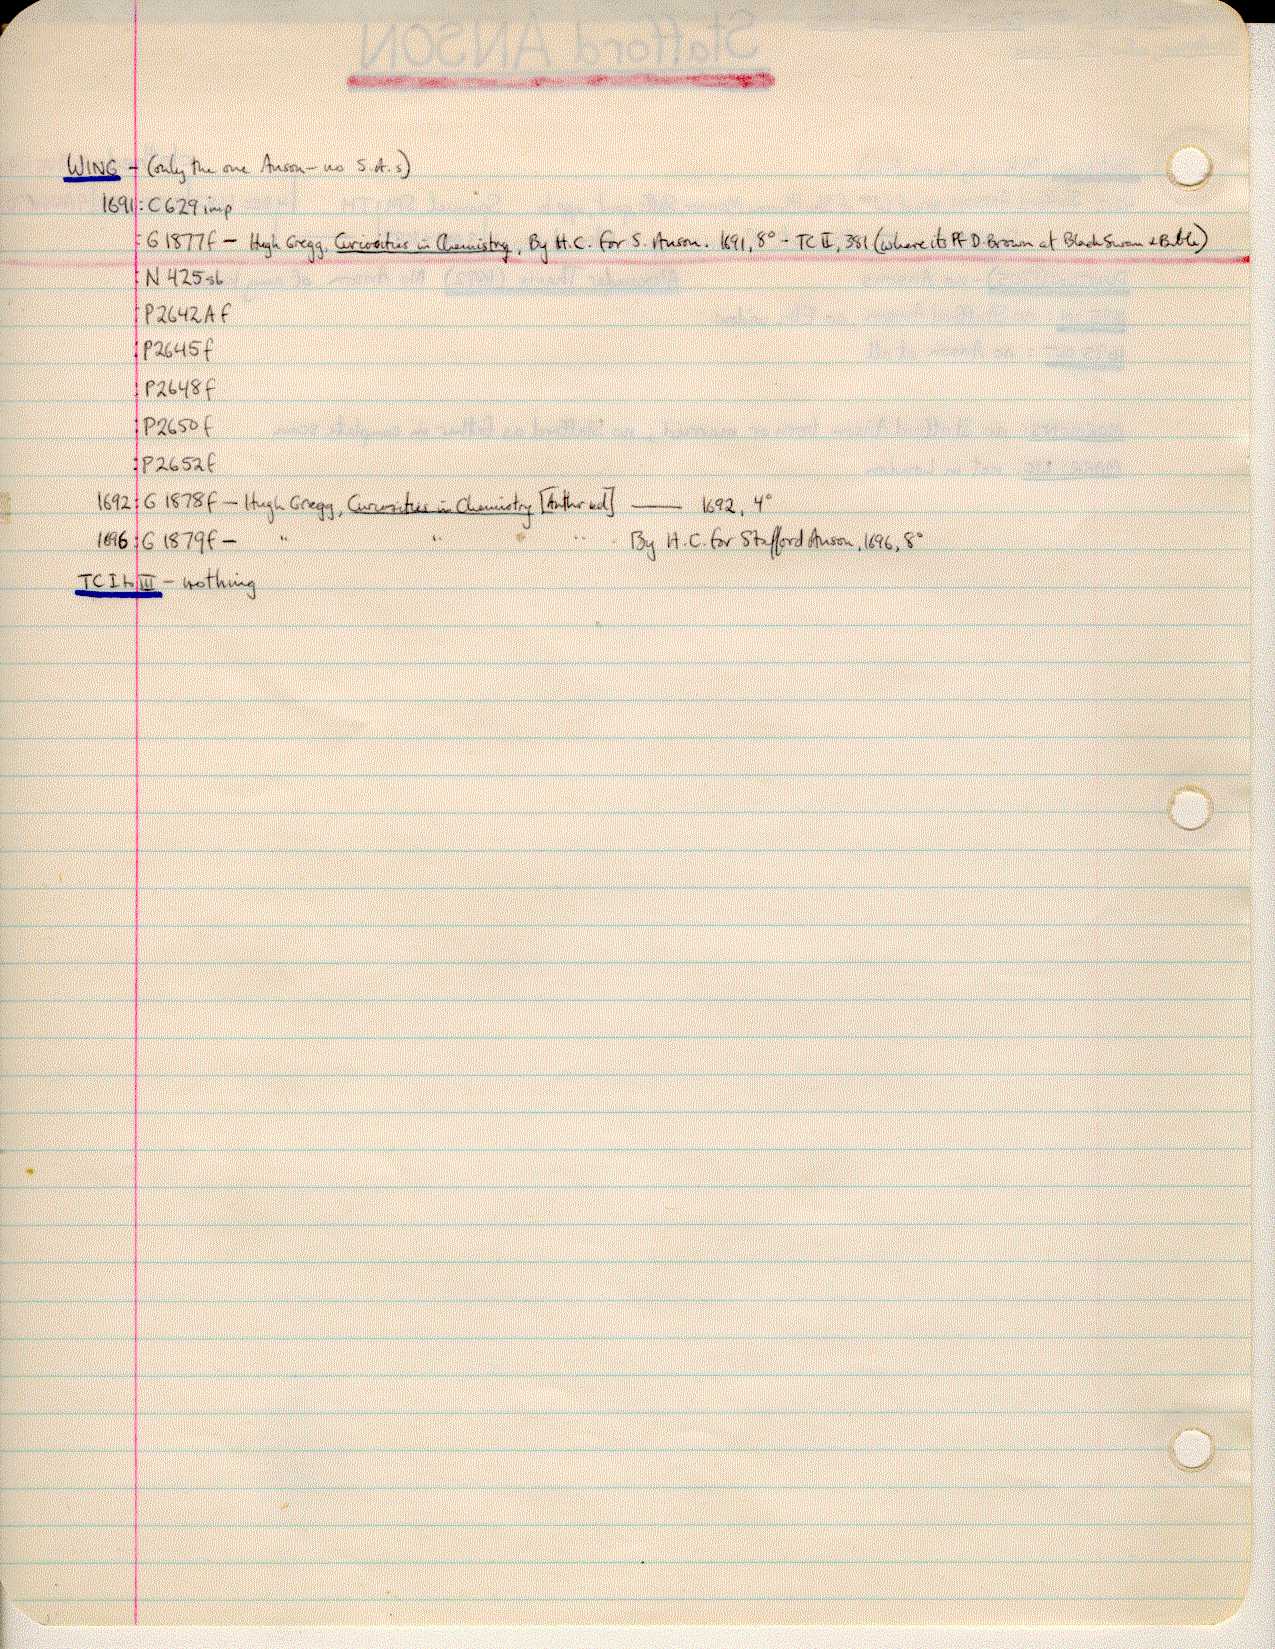 WING - (only the one Anson - no S.A.s)
1691: C629 imp
: G1877f - Hugh Gregg, Curiosities in Chemistry, By H.C. for S. Anson. 1691, 8° - TC II, 381 (where its Pf D. Brown at Black Swan & Bible)
: N425sb
: P2642Af
: P2645f
: P2648f
: P2650f
: P2652f
1692: G1878f - Hugh Gregg, Curiosities in Chemistry [Anthr ed] —— 1692, 4°
1696: G1879f - " " " By H.C. for Stafford Anson, 1696, 8°
TC I to III - nothing
Stafford ANSON